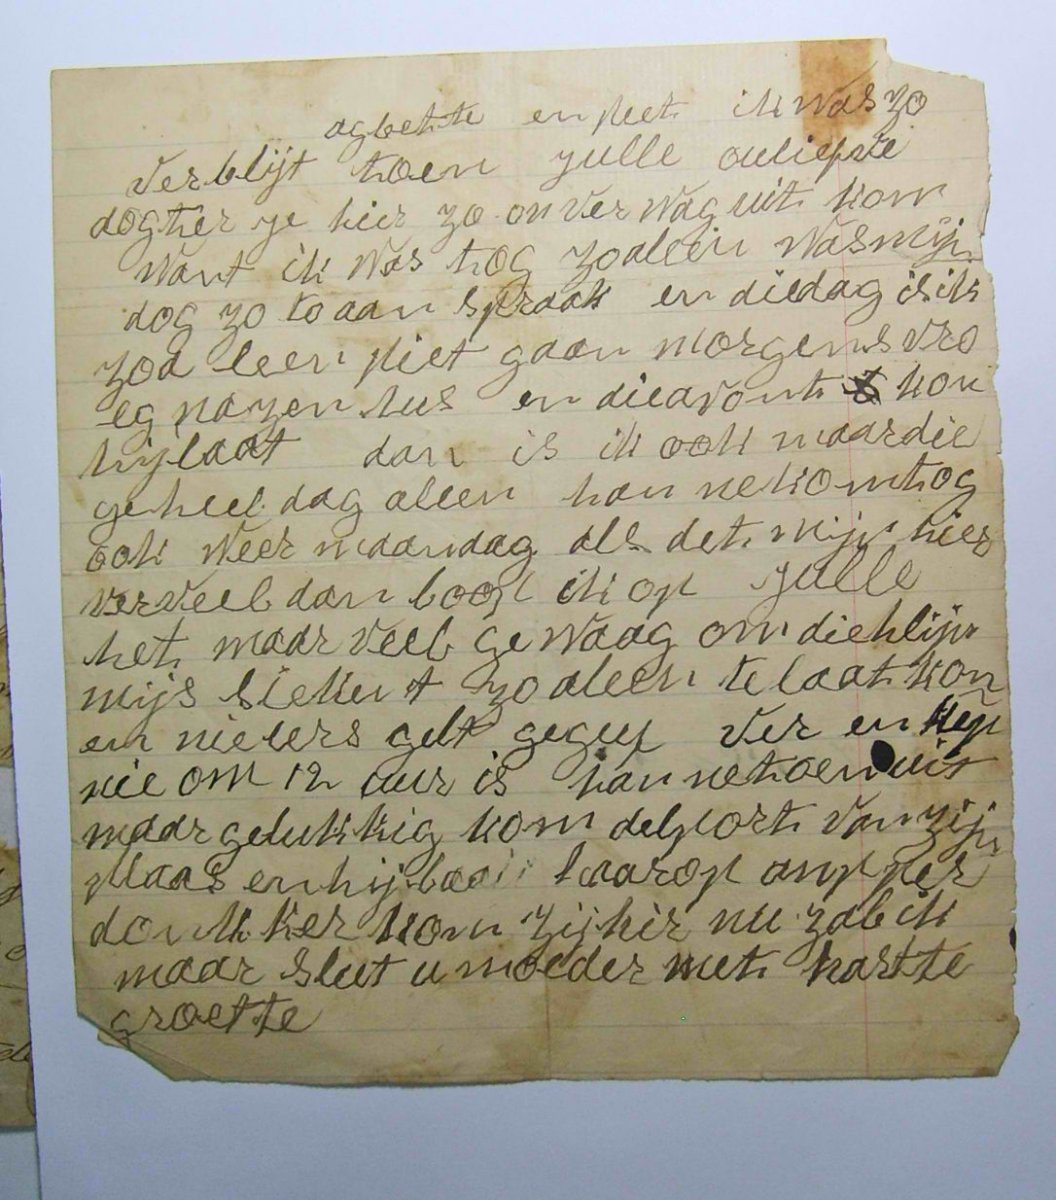 ag bette en piet ik was zo
verblijt toen julle ouliefve
dogter je hier zo onverwag uit kom
want ik was tog zo aleen was mijn
dog zo to aan spraak en die dag is ik
zoa leen piet gaan morgens vro
eg na zen hus en die avont kon
hij laat dan is ik ook maar die
geheel dag aleen hanne kom tog
ook weer maandag als det mijn hier
verveel dan loop ik op julle
het maar veel gewaag om die klijn
mijs siekent zo aleen te laat kon
em niewers gelt gegeef ver en
nie om 12 uur is hanne toen uit
maar gelukkig kom delport van zijn
plaas en hij laarop amper
donkker kom zij hir nu zal ik
maar sleet u moeder met hartte
groette